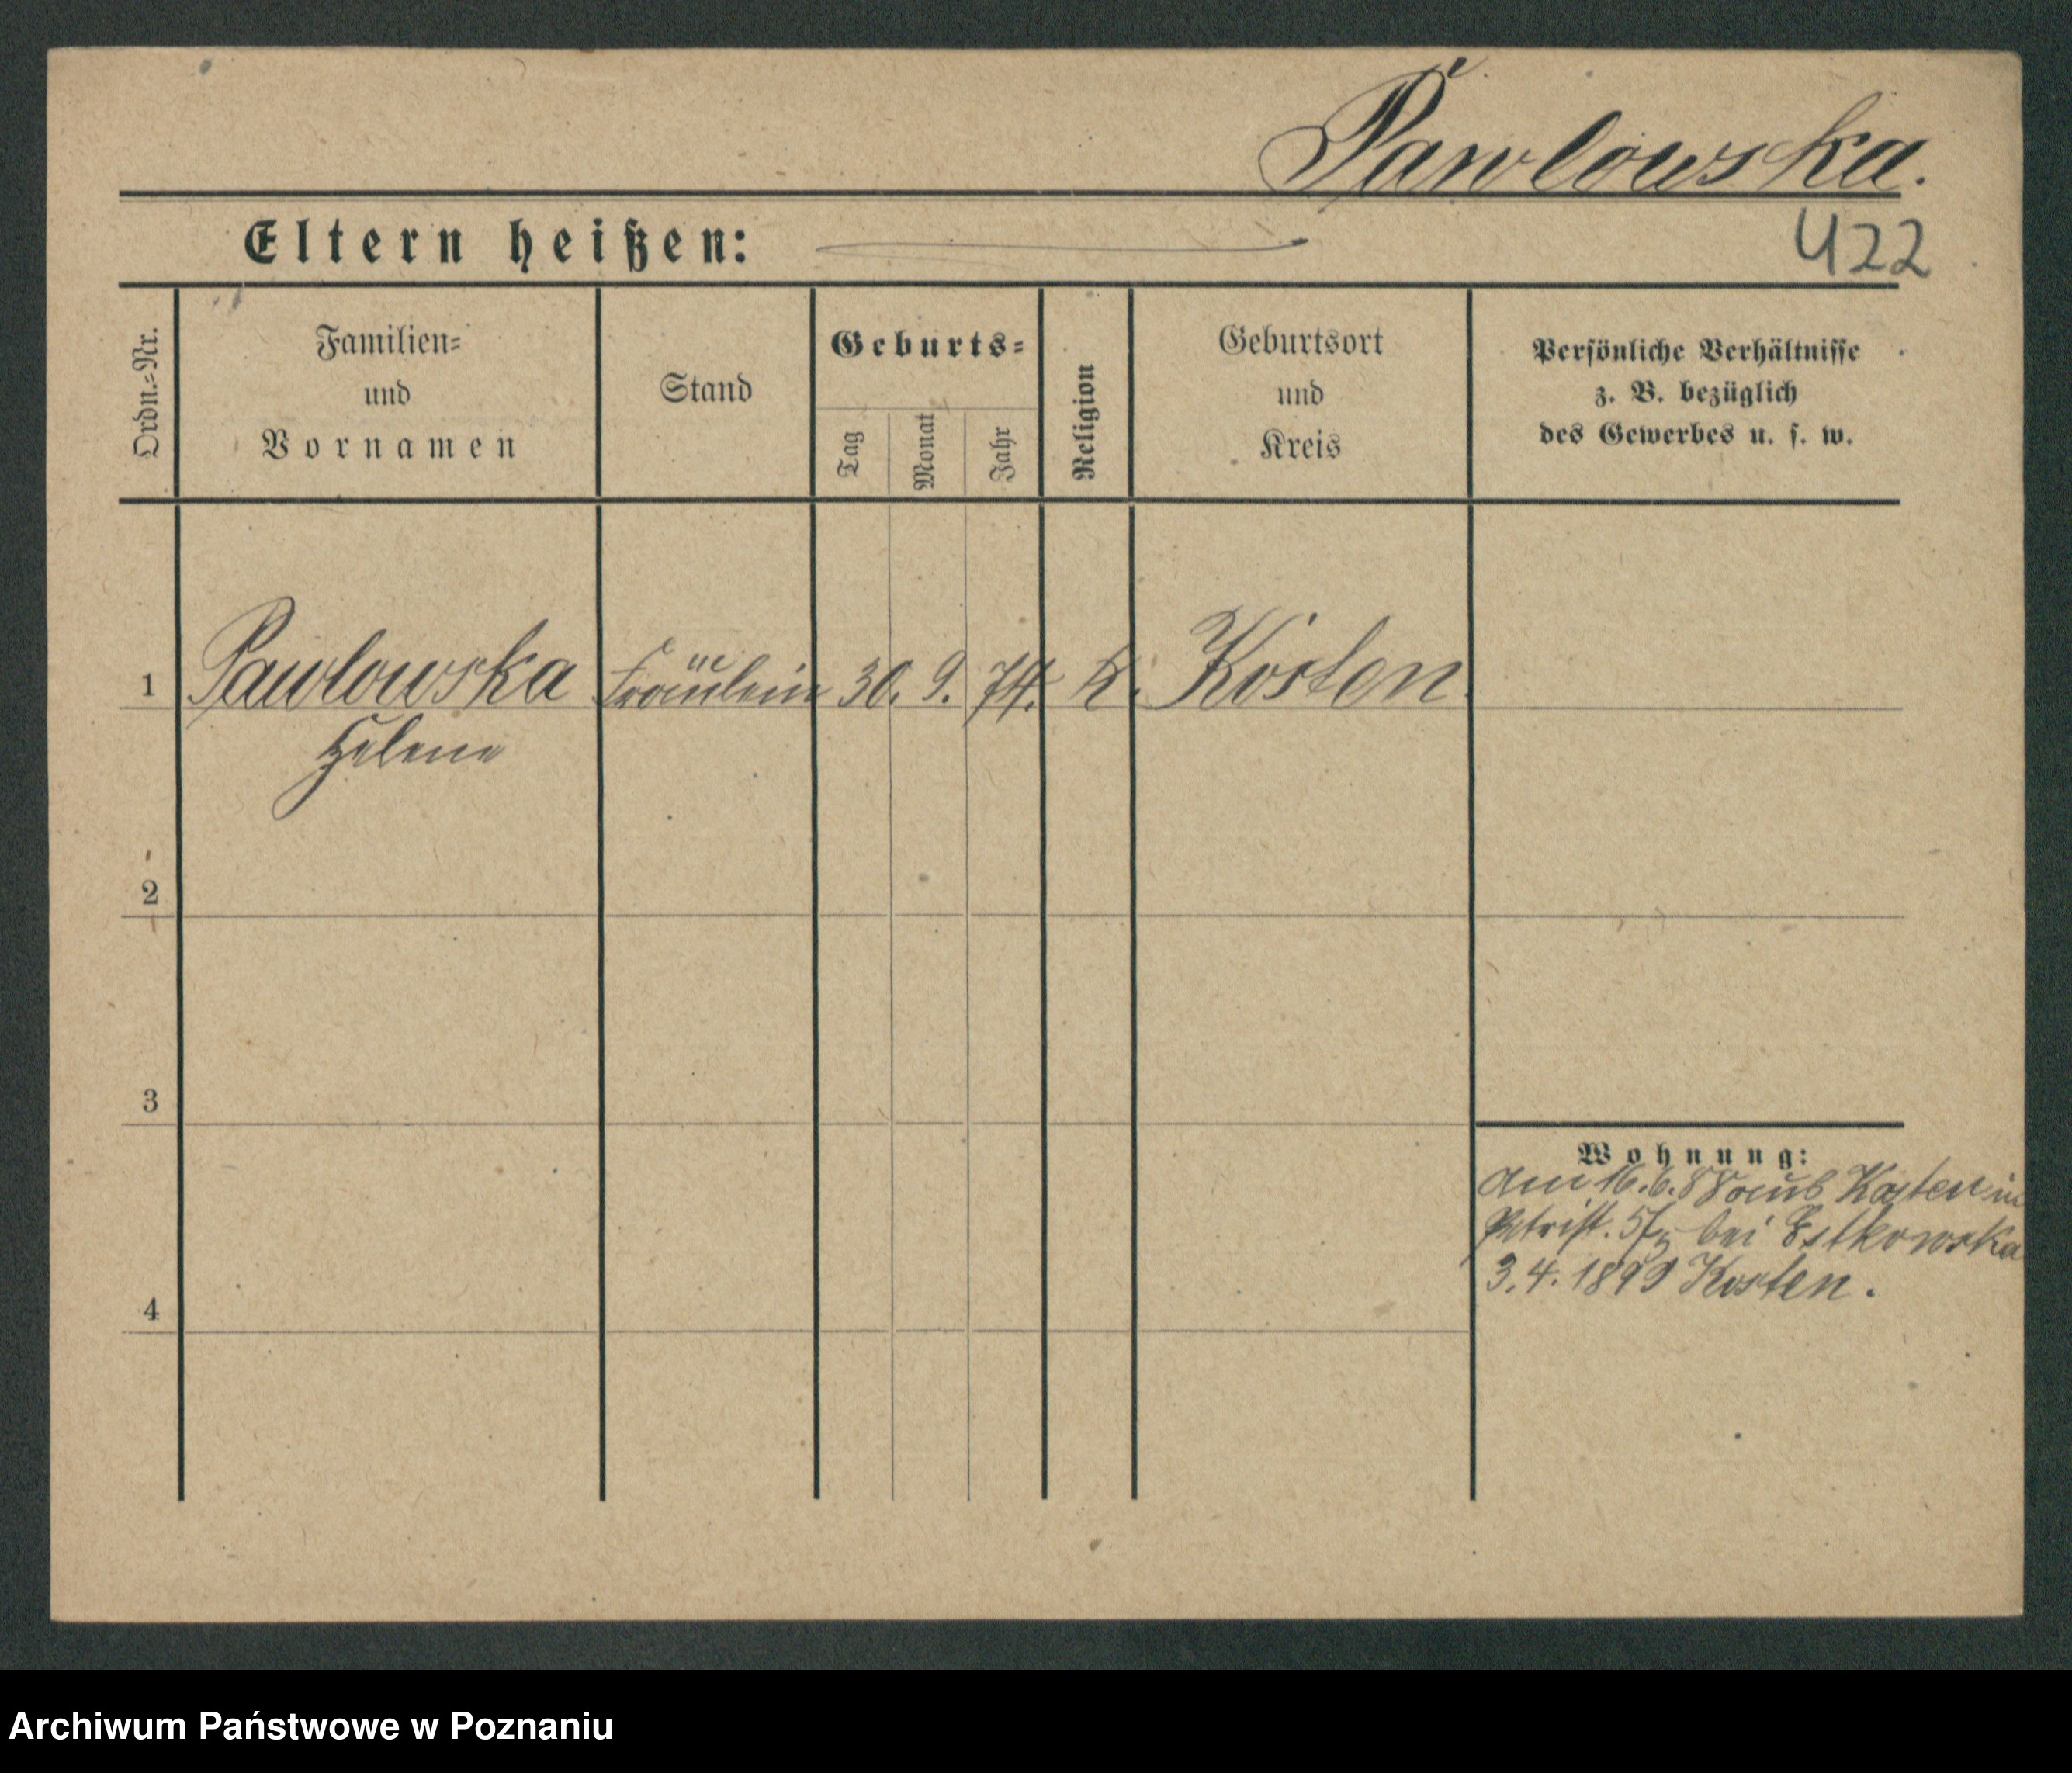 Pawlowska.
Eltern heißen:
422
Ordn.=Nr.
Familien=
und
Vornamen
Stand
Geburts=
Tag
Monat
Jahr
Religion
Geburtsort
und
Kreis
Persönliche Verhältnisse
z. B. bezüglich
des Gewerbes u. s. w.
1 Pawlowska Fräulein 30. 9. 74. K. Kosten
Helene
2
3
4
Wohnung:
Am 16.6. aus Kosten in
Petrist. bei Estkowska
3.4.1899 Kosten.
Archiwum Państwowe w Poznaniu